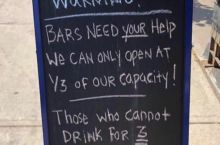 BARS NEED YOUR HELP
WE CAN ONLY OPEN AT
1/3 OF OUR CAPACITY!
THOSE WHO CANNOT
DRINK FOR 3